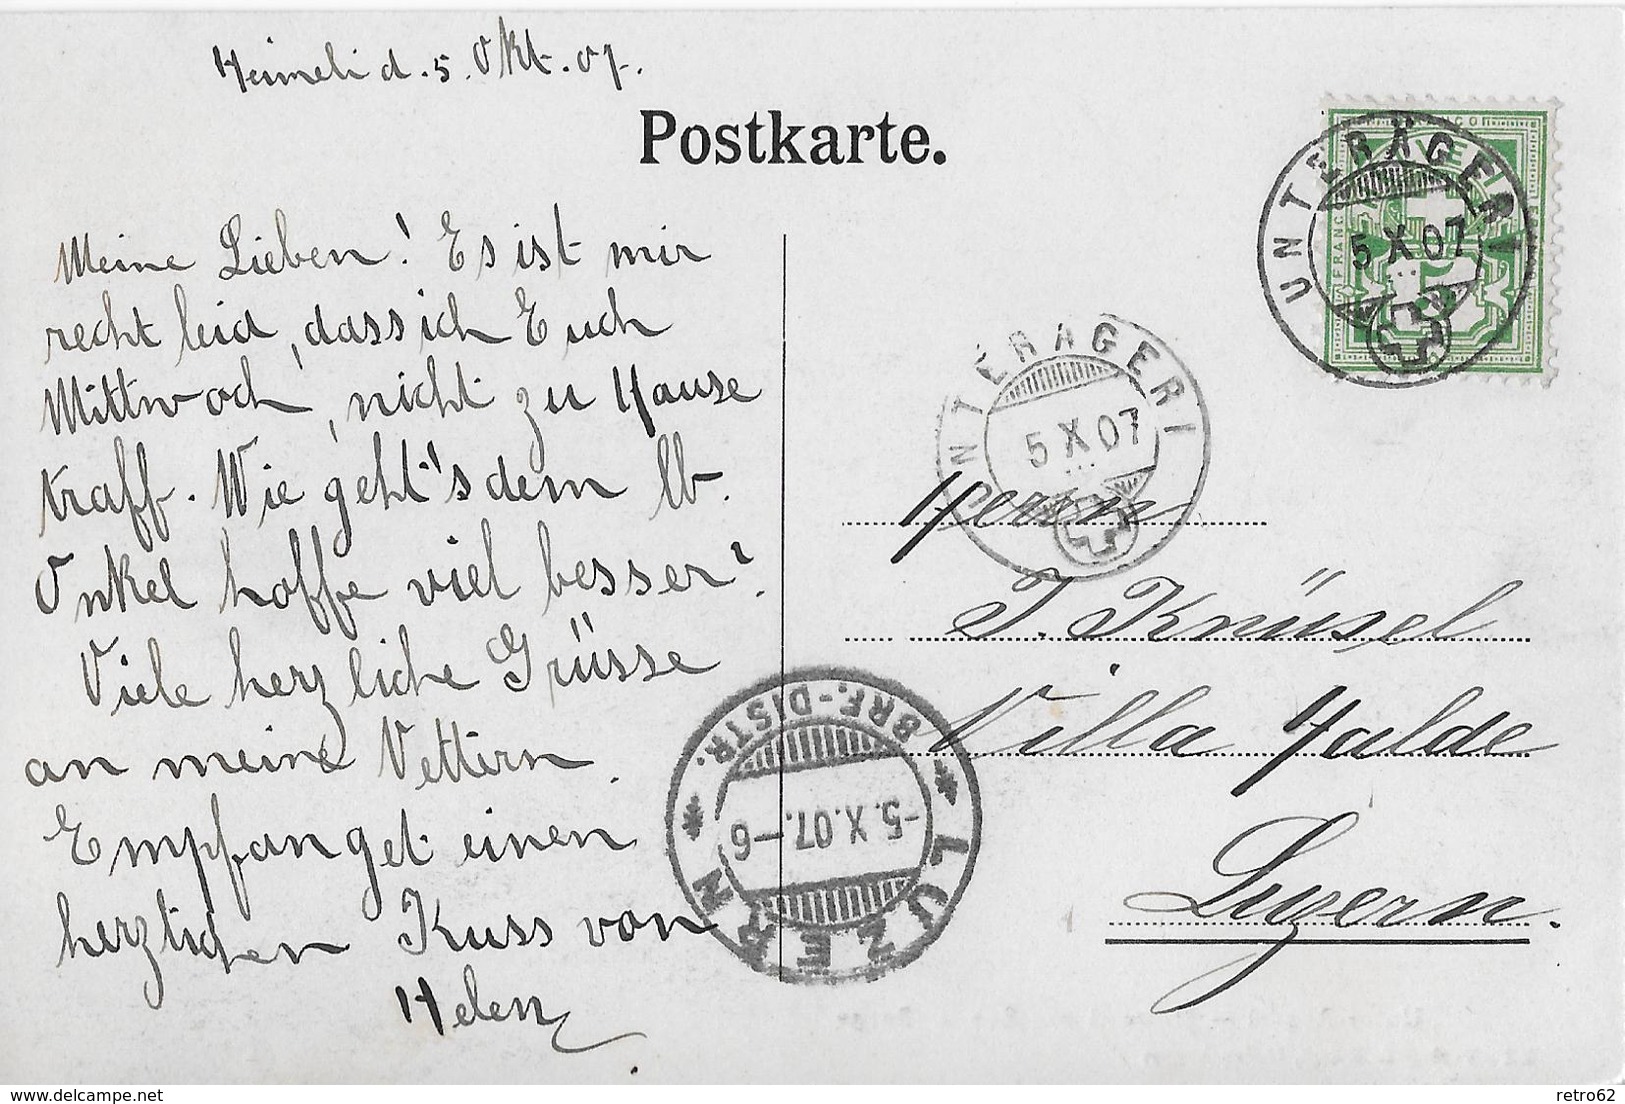 Heimeli d. 5. Okt. 07.
Postkarte.
Meine Lieben! Es ist mir
recht leid, dass ich Euch
Mittwoch, nicht zu Hause
traff. Wie geht's dem lb.
Onkel hoffe viel besser?
Viele herzliche Grüsse
an meine Vettern.
Empfanget einen
herzlichen Kuss von
Helen
FRANCO
UNTERÄGERI
5 X 07
UNTERÄGERI
5 X 07
Herrn
J. Knüsel
Villa Halde
Luzern.
LUZERN
BRF.-DISTR.
-5.X.07.-6
delcampe.net
retro62